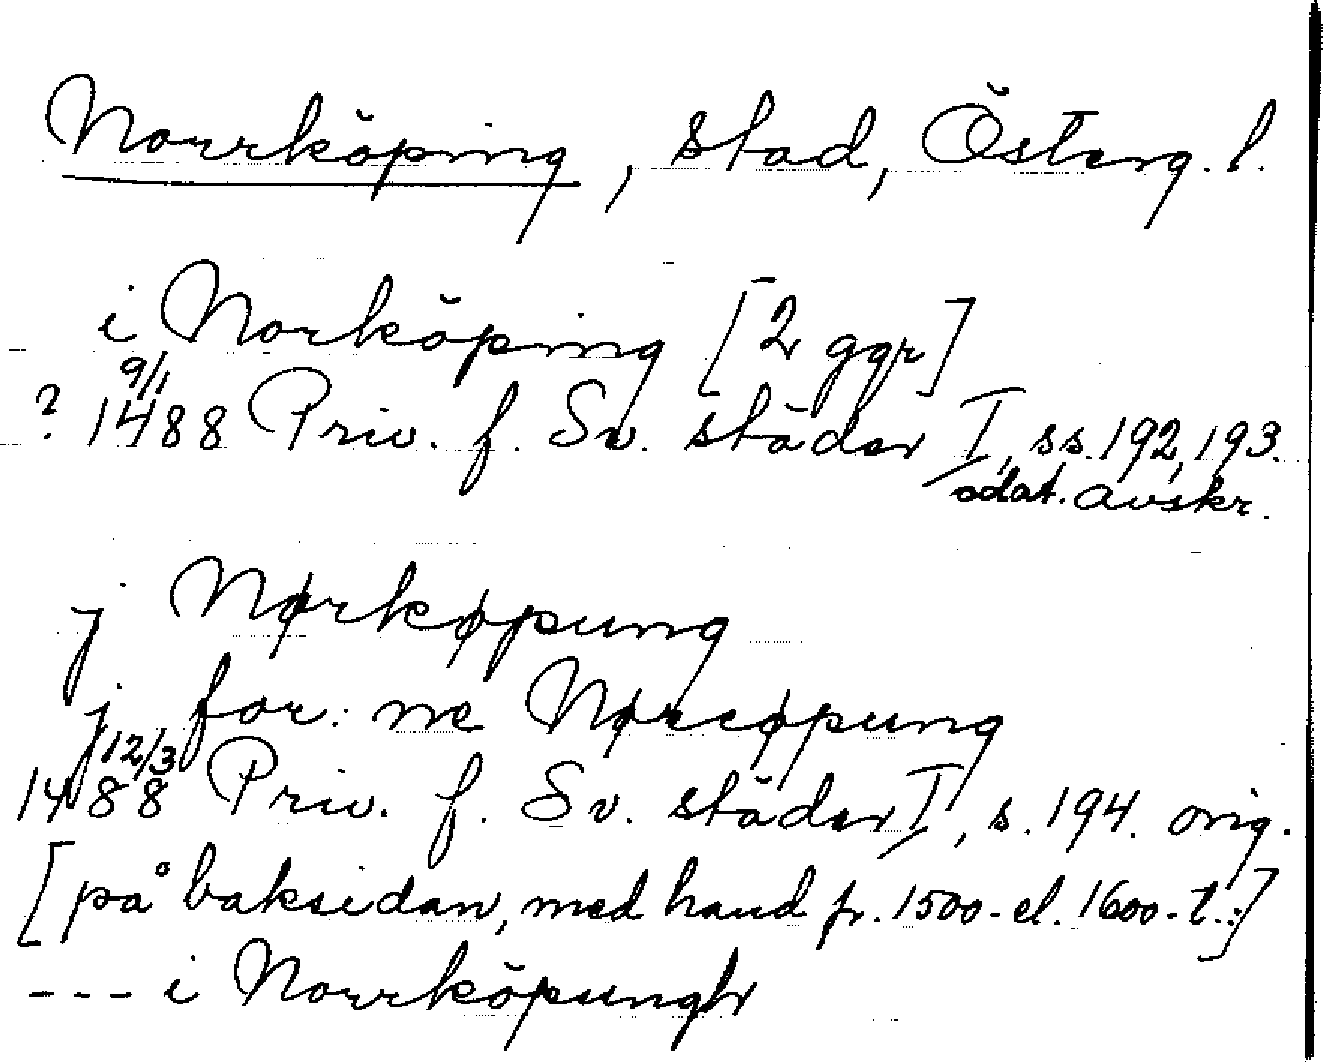 Norrköping, stad, Österg. l.
i Norköping [2 ggr]
9/1
? 1488 Priv. f. Sv. städer I, ss. 192, 193.
odat. avskr.
j Nørkøpung
j for: ne Nørcøpung
12/3
1488 Priv. f. Sv. städer I, s. 194. orig.
[på baksidan, med hand fr. 1500- el. 1600-t.:]
--- i Norrköpungh